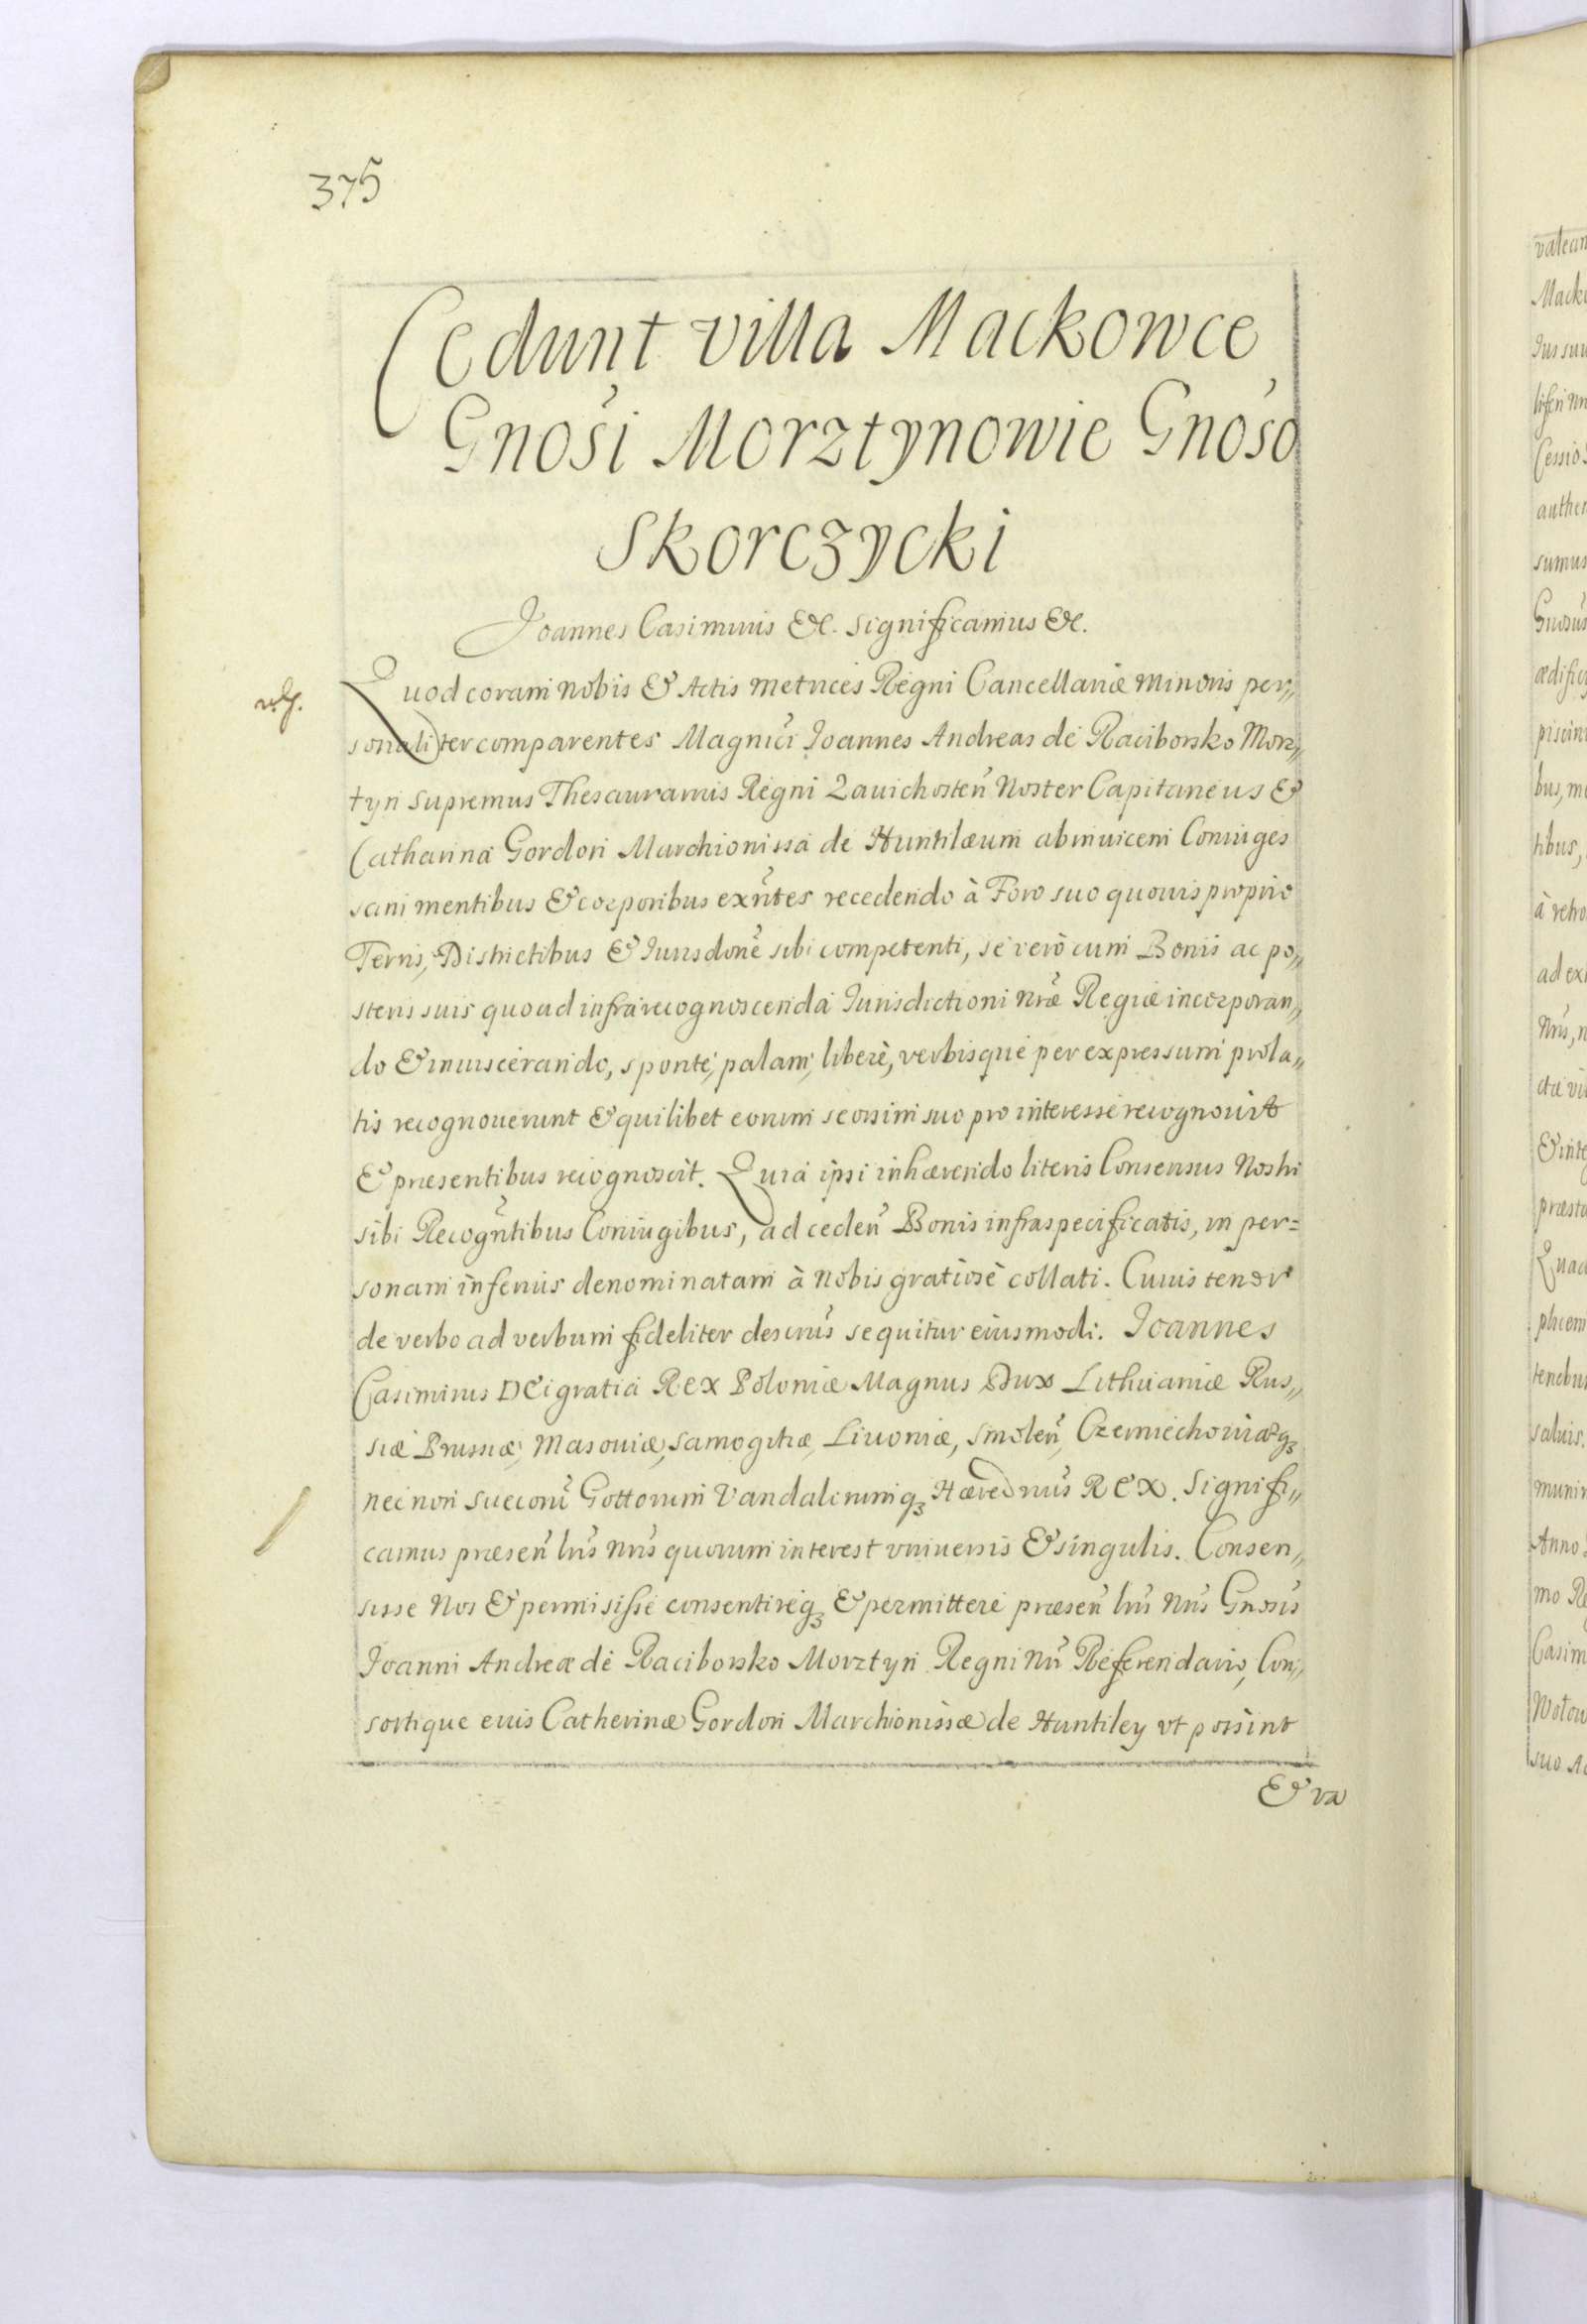 375
Cedunt villa Mackowce
Gnosi Morztynowie Gnoso
Skorczycki
Joannes Casimirus &c. significamus &c.
Quod coram nobis & Actis metrices Regni Cancellariæ minoris per„
sonaliter comparentes Magnici Joannes Andreas de Raciborsko Morz„
tyn supremus Thesaurarius Regni Zauichosteñ Noster Capitaneus &
Catharina Gordon Marchionissa de Huntilæum abinuicem Coniuges
sani mentibus & corporibus exñtes recedendo à Foro suo quouis proprio
Terris, Districtibus & Iurisdone sibi competenti, se verò cum Bonis ac po„
steris suis quoad infra recognoscenda Iurisdictioni nrae Regiæ incorporan„
do & inuiscerando, sponte, palam, liberè, verbisque per expressum prola„
tis recognouerunt & quilibet eorum seorsim suo pro interesse recognouit
& præsentibus recognoscit. Quia ipsi inhærendo literis Consensus Nostri
sibi Recogñtibus Coniugibus, ad cedeñ Bonis infraspecificatis, in per=
sonam inferius denominatam à Nobis gratiosè collati. Cuius tenor
de verbo ad verbum fideliter descrus sequitur eiusmodi. Joannes
Casimirus DEi gratia REX Poloniæ Magnus Dux Lithuaniæ Rus„
siæ Prussiæ, Masouiæ, Samogitiæ, Liuoniæ, Smoleñ, Czerniechouiæq3
nec non Suecorũ Gottorum Vandalorumq3 Hæredrius REX. Signifi„
camus præseñ lris nris quorum interest vniuersis & singulis. Consen„
sisse Nos & permisisse consentireq3 & permittere præseñ lris Nris Gnosis
Joanni Andreæ de Raciborsko Morztyn Regni Nri Referendario, Con„
sortique eius Catherinæ Gordon Marchionissæ de Huntiley vt possint
& va